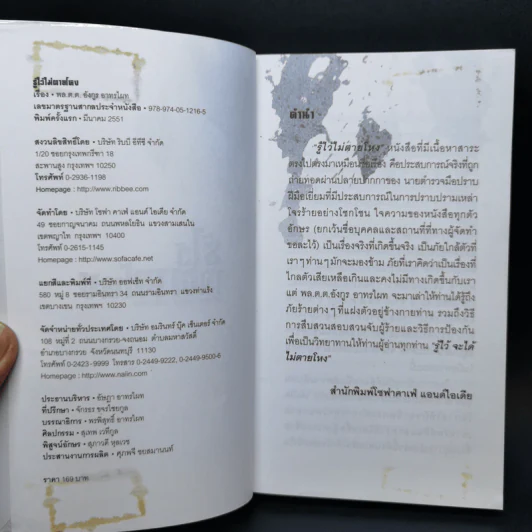 รู้ไว้ไม่ตายโหง
เรื่อง • พล.ต.ต. อังกูร อาทรไผท
เลขมาตรฐานสากลประจำหนังสือ • 978-974-05-1216-5
พิมพ์ครั้งแรก • มีนาคม 2551
สงวนลิขสิทธิ์โดย • บริษัท ริบบี้ อีทีซี จำกัด
1/20 ซอยกรุงเทพกรีฑา 18
สะพานสูง กรุงเทพฯ 10250
โทรศัพท์ 0-2936-1198
Homepage : http://www.ribbee.com
จัดทำโดย • บริษัท โซฟา คาเฟ่ แอนด์ ไอเดีย จำกัด
49 ซอยกาญจนาคม ถนนพหลโยธิน แขวงสามเสนใน
เขตพญาไท กรุงเทพฯ 10400
โทรศัพท์ 0-2615-1145
Homepage : http://www.sofacafe.net
แยกสีและพิมพ์ที่ • บริษัท ออฟเซ็ท จำกัด
560 หมู่ 8 ซอยรามอินทรา 34 ถนนรามอินทรา แขวงท่าแร้ง
เขตบางเขน กรุงเทพฯ 10230
จัดจำหน่ายทั่วประเทศโดย • บริษัท อมรินทร์ บุ๊ค เซ็นเตอร์ จำกัด
108 หมู่ที่ 2 ถนนบางกรวย-จงถนอม ตำบลมหาสวัสดิ์
อำเภอบางกรวย จังหวัดนนทบุรี 11130
โทรศัพท์ 0-2423-9999 โทรสาร 0-2449-9222, 0-2449-9500-6
Homepage : http://www.naiin.com
ประธานบริหาร • อัษฎา อาทรไผท
ที่ปรึกษา • จักรธร ขจรไชยกูล
บรรณาธิการ • พรพิสุทธิ์ อาทรไผท
ศิลปกรรม • สุเทพ เวทีกูล
พิสูจน์อักษร • สุภาวดี
ประสานงานการผลิต • ศุภพจี ชยสมานนท์
ราคา 169 บาท
คำนำ
"รู้ไว้ไม่ตายโหง" หนังสือที่มีเนื้อหาสาระ
ตรงไปตรงมาเหมือนชื่อเรื่อง คือประสบการณ์จริงที่ถูก
ถ่ายทอดผ่านปลายปากกาของ นายตำรวจมือปราบ
ฝีมือเยี่ยมที่มีประสบการณ์ในการปราบปรามเหล่า
โจรร้ายอย่างโชกโชน ใจความของหนังสือทุกตัว
อักษร (ยกเว้นชื่อบุคคลและสถานที่ที่ทางผู้จัดทำ
ขอละไว้) เป็นเรื่องจริงที่เกิดขึ้นจริง เป็นภัยใกล้ตัวที่
เราๆ ท่านๆ มักจะมองข้าม ภัยที่เราคิดว่าเป็นเรื่องที่
ไกลตัวเสียเหลือเกินและคงไม่มีทางเกิดขึ้นกับเรา
แต่ พล.ต.ต.อังกูร อาทรไผท จะมาเล่าให้ท่านได้รู้ถึง
ภัยร้ายต่างๆ ที่แฝงตัวอยู่ข้างกายท่าน รวมถึงวิธี
การสืบสวนสอบสวนจับผู้ร้ายและวิธีการป้องกัน
เพื่อเป็นวิทยาทานให้ท่านผู้อ่านทุกท่าน "รู้ไว้ จะได้
ไม่ตายโหง"
สำนักพิมพ์โซฟาคาเฟ่ แอนด์ไอเดีย